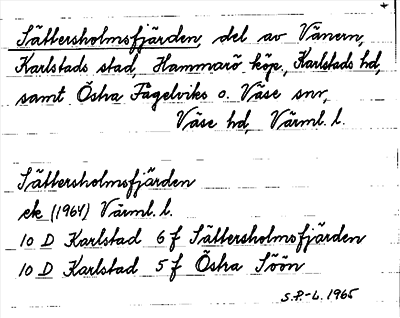 Sättersholmsfjärden, del av Vänern,
Karlstads stad, Hammarö köp., Karlstads hd,
samt Östra Fågelviks o. Väse snr,
Väse hd, Värml. l.
Sättersholmsfjärden
ek (1964) Värml. l.
10 D Karlstad 6 f Sättersholmsfjärden
10 D Karlstad 5 f Östra Söön
S.P.-L. 1965